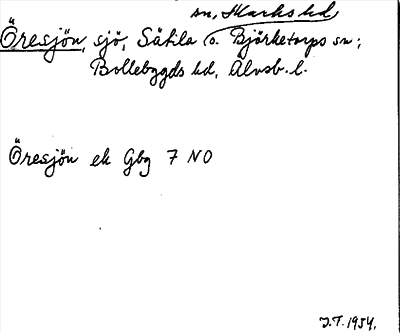 sn, Marks hd,
Öresjön, sjö, Sätila o. Björketorps sn;
Bollebygds hd, Älvsb. l.
Öresjön ek Gbg 7 NO
J.T. 1954.